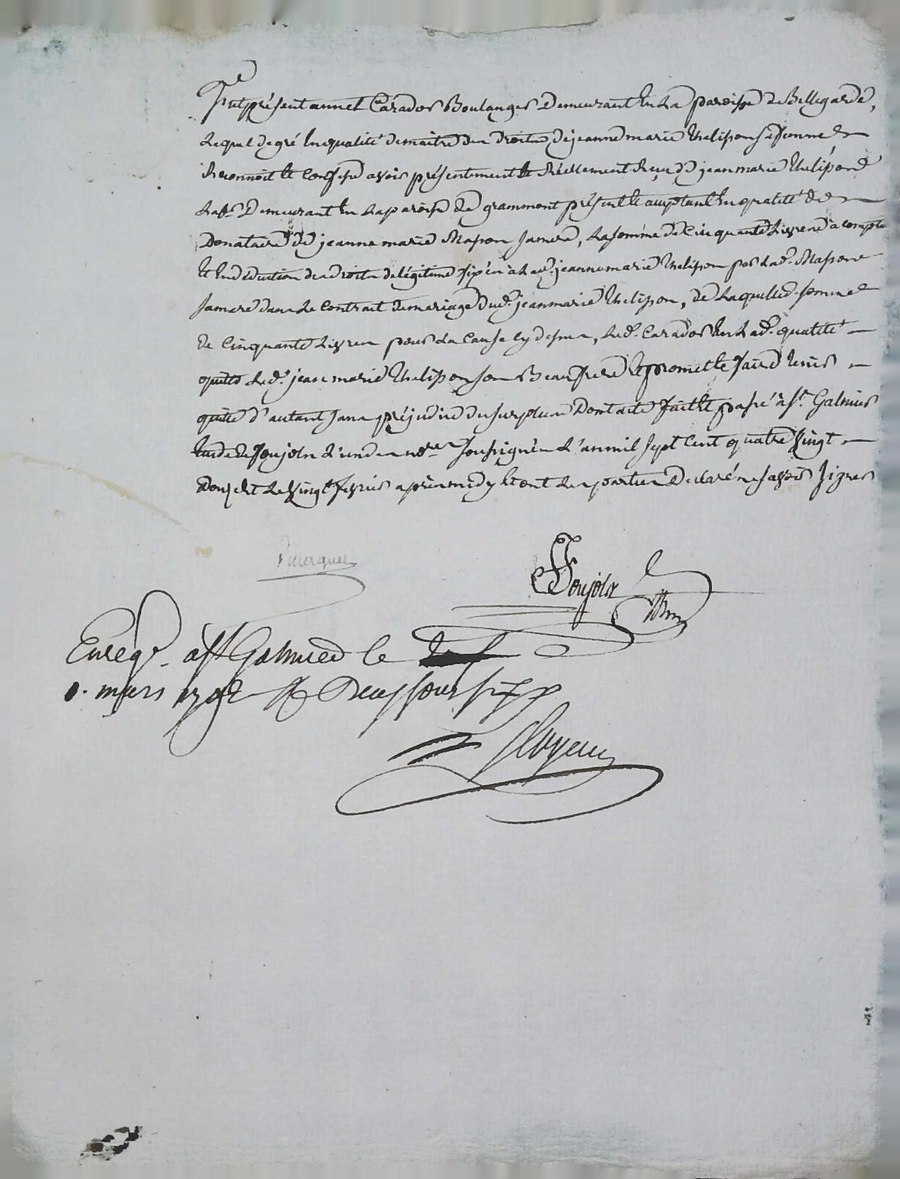 Fut présent annet Carados Boulanger Demeurant En La paroisse de Bellegarde,
Lequel de gré En qualité de maitre des Droits de jeanne marie Thelisson sa femme
Reconnoit Et Confesse avoir présentement Et Réellement Reçu de jean marie Thelisson
Lab.r Demeurant En La paroisse de grammont présent Et acceptant En qualité de
Donataire de jeanne marie Masson sa mere, La somme de Cinquante Livres à compte
Et En deduction des Droits de légitime fixés à La d. jeanne marie Thelisson par La d. Masson
sa mere dans Le Contrat de mariage dud. jean marie Thelisson, de Laquelle somme
de Cinquante Livres pour La Cause Cy dessus, Led. Carados En Lad. qualité
quitte Led. jean marie Thelisson son Beaufrere Et promet Le faire tenir
quitte d'autant sans préjudice du surplus Dont acte fait Et passé à St. Galmier
Etude de Soujols L'un des no.res Soussignés L'an mil sept cent quatre vingt
Le vingt fevrier après midy Et ont Les parties Declaré ne savoir signer
Soujols
Enreg. à St Galmier le
mars 1782